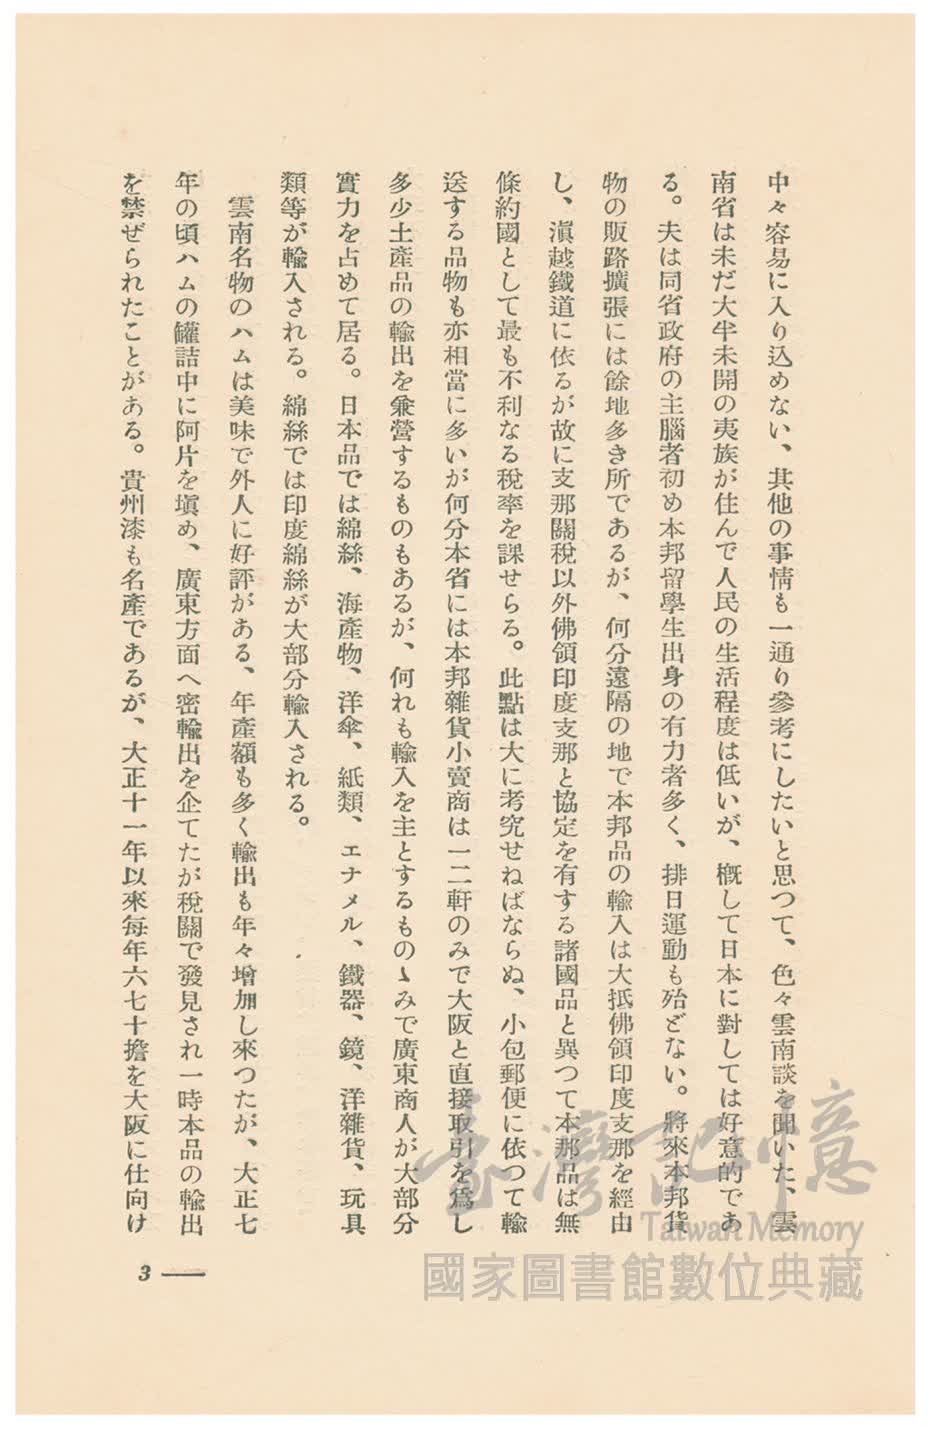 中々容易に入り込めない、其他の事情も一通り參考にしたいと思つて、色々雲南談を聞いた、雲
南省は未だ大半未開の夷族が住んで人民の生活程度は低いが、槪して日本に對しては好意的であ
る。夫は同省政府の主腦者初め本邦留學生出身の有力者多く、排日運動も殆どない。將來本邦貨
物の販路擴張には餘地多き所であるが、何分遠隔の地で本邦品の輸入は大抵佛領印度支那を經由
し、滇越鐵道に依るが故に支那關稅以外佛領印度支那と協定を有する諸國品と異つて本那品は無
條約國として最も不利なる稅率を課せらる。此點は大に考究せねばならぬ、小包郵便に依つて輸
送する品物も亦相當に多いが何分本省には本邦雜貨小賣商は一二軒のみで大阪と直接取引を爲し
多少土產品の輸出を兼營するものもあるが、何れも輸入を主とするものゝみで廣東商人が大部分
實力を占めて居る。日本品では綿絲、海產物、洋傘、紙類、エナメル、鐵器、鏡、洋雜貨、玩具
類等が輸入される。綿絲では印度綿絲が大部分輸入される。
雲南名物のハムは美味で外人に好評がある、年產額も多く輸出も年々增加し來つたが、大正七
年の頃ハムの罐詰中に阿片を塡め、廣東方面へ密輸出を企てたが稅關で發見され一時本品の輸出
を禁ぜられたことがある。貴州漆も名產であるが、大正十一年以來每年六七十擔を大阪に仕向け
3
臺灣記憶
Taiwan Memory
國家圖書館數位典藏